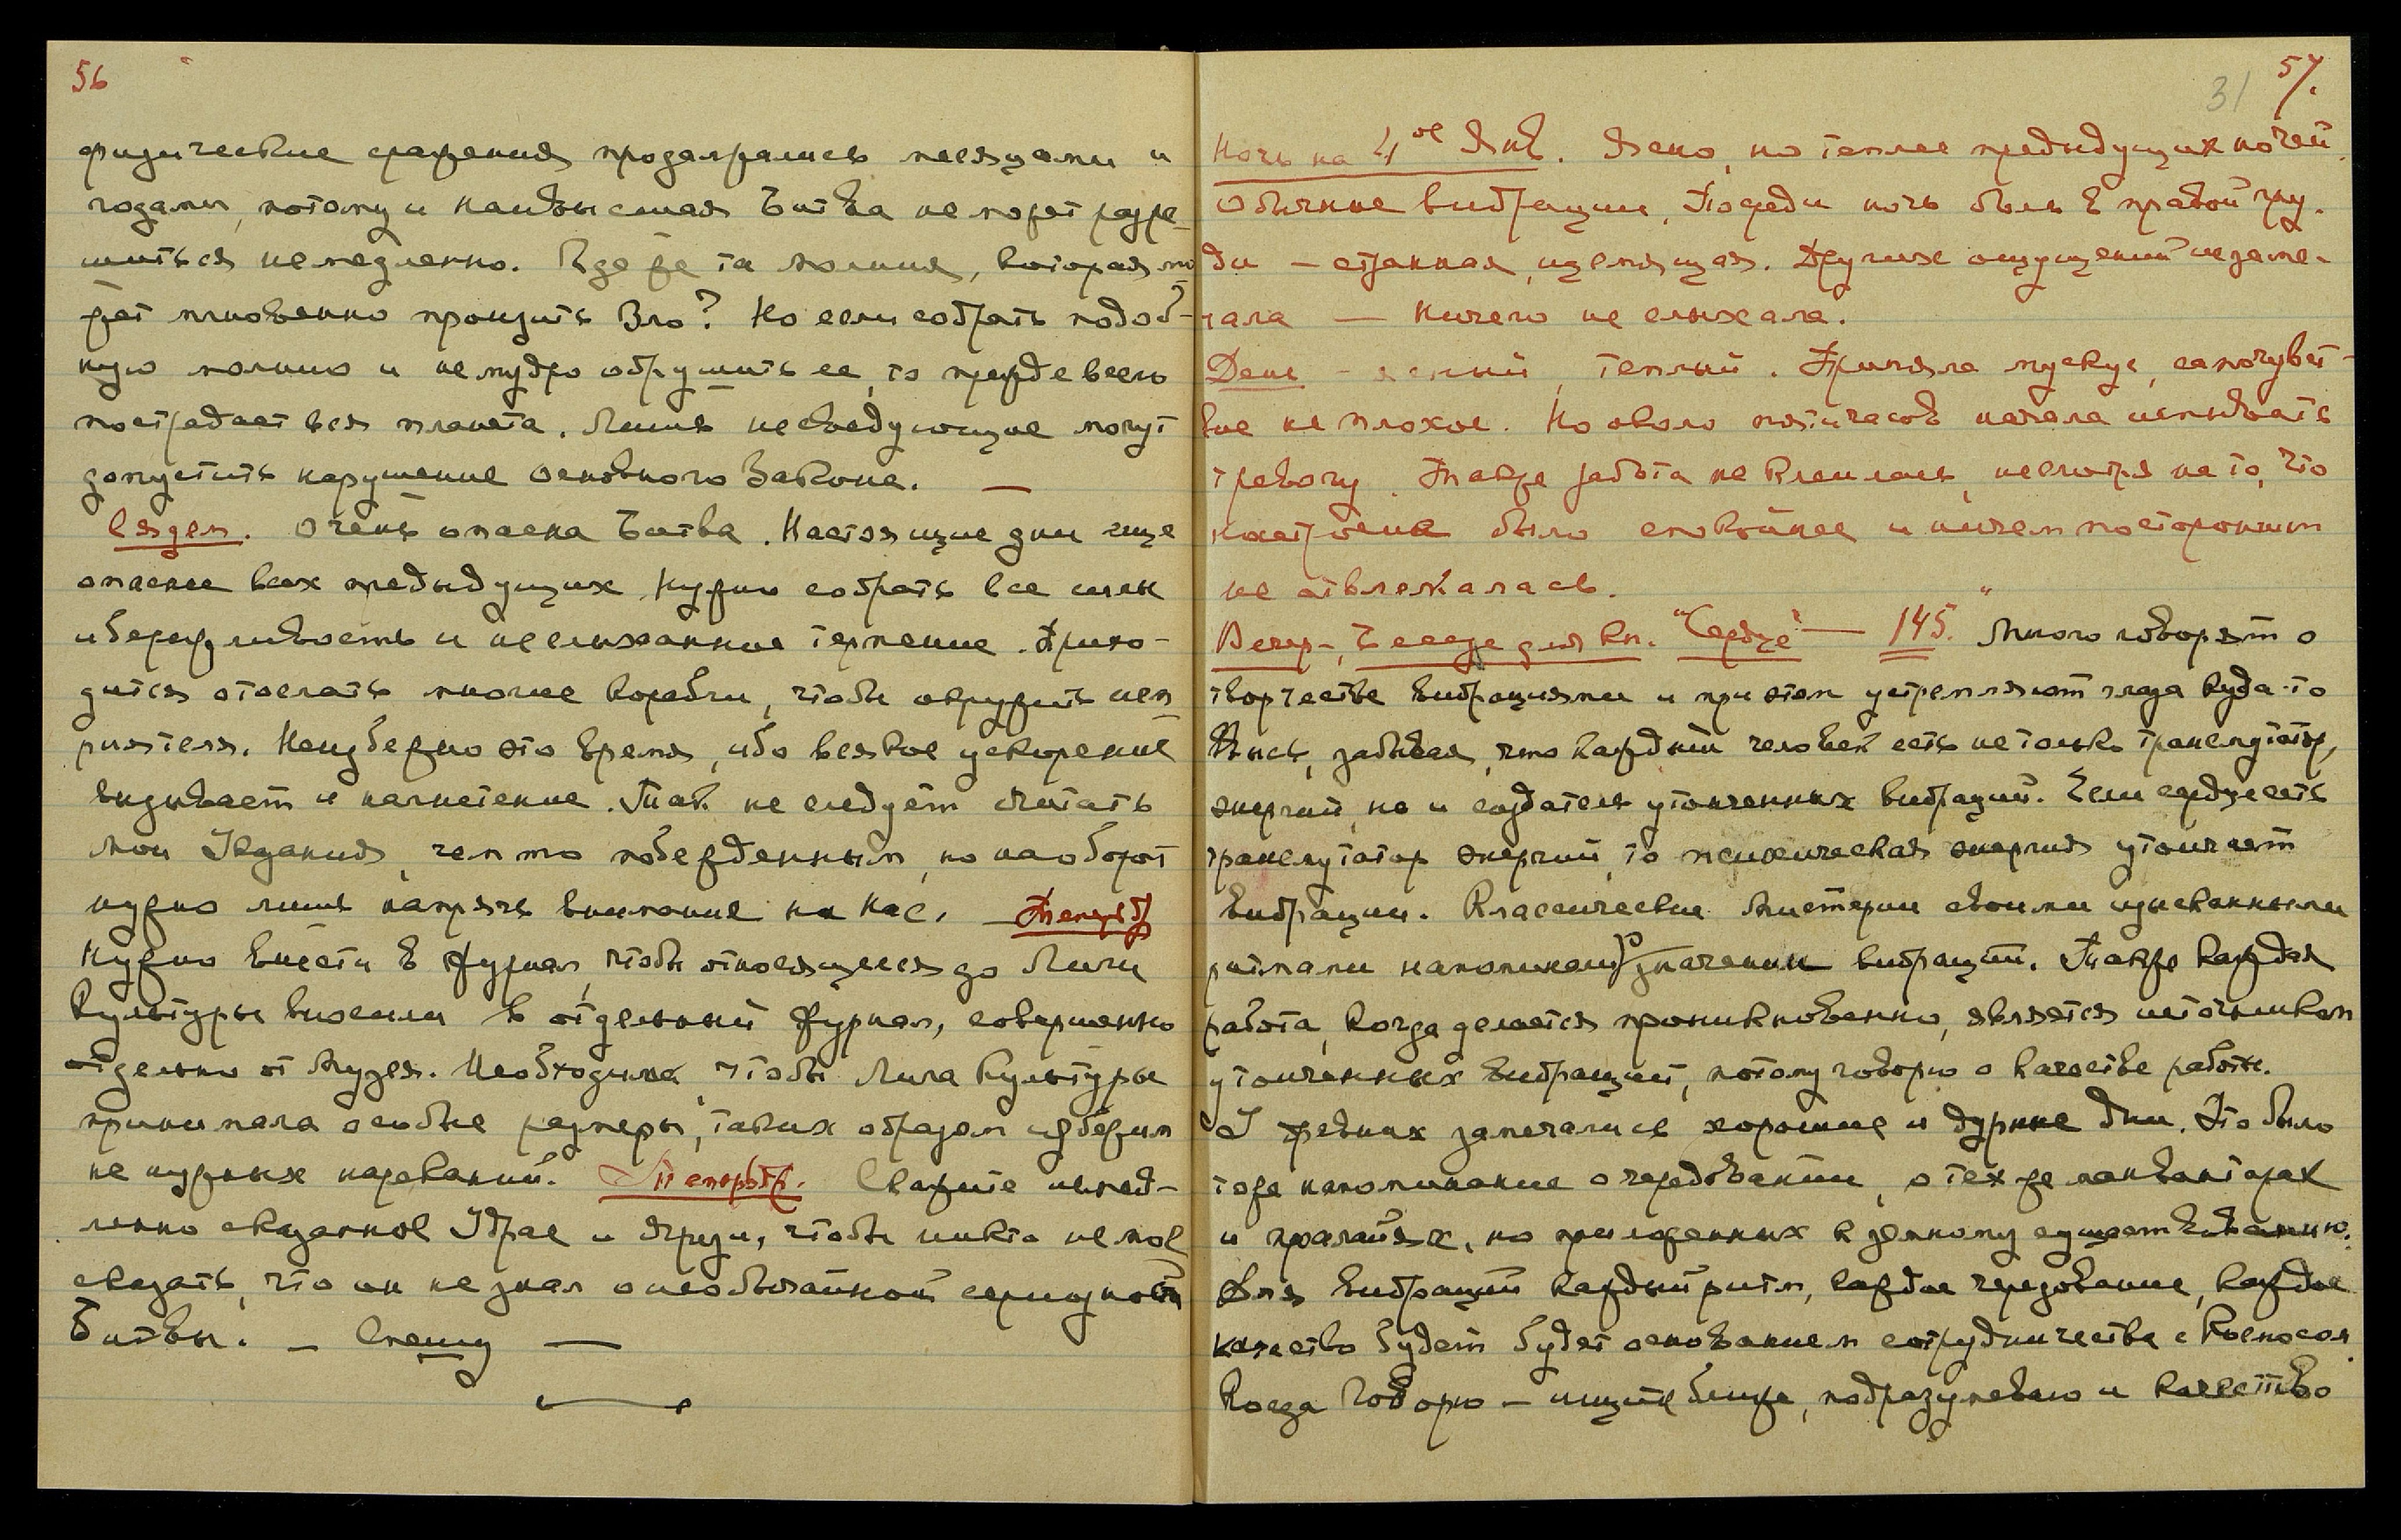 56
физические сражения продолжались месяцами и
годами, потому и наивысшая Битва не может разре-
шиться немедленно. Где же та молния, которая мо-
жет мгновенно пронзить Зло? Но если собрать подоб-
ную молнию и немудро обрушить ее, то прежде всего
пострадает вся планета. Лишь несведующие могут
допустить нарушение основного Закона. —
Ояден. Очень опасна Битва. Настоящие дни еще
опаснее всех предыдущих. Нужно собрать все силы
и бережливость и неслыханное терпение. Прихо-
дится отослать многие корабли, чтобы окружить неп-
риятеля. Неизбежно это время, ибо всякое ускорение
вызывает и нагнетение. Так не следует считать
Мои Указания чем-то побежденным, но наоборот
нужно лишь напрячь внимание на Нас. —
Нужно внести в журнал, чтобы относящееся до Лиги
Культуры вносили в отдельный журнал, совершенно
отдельно от Музея. Необходимо, чтобы Лига Культуры
принимала особые размеры, таким образом избежим
ненужных нареканий. Скажите немед-
ленно сказанное Удрае и Яруи, чтобы никто не мог
сказать, что он не знал о необычайной серьезности
Битвы. — Спешу —
31 57.
Ночь на 4ое Янв. Ясно, но теплее предыдущих ночей.
Обычные вибрации. Посреди ночи боль в правой гру-
ди — странная, щемящая. Других ощущений не заме-
чала — Ничего не слыхала.
День - ясный, теплый. Приняла мускус, самочувст-
вие не плохое. Но около пяти часов начала испытывать
тревогу. Также работа не клеилась, несмотря на то, что
настроение было спокойнее и ничем посторонним
не отвлекалась.
Вечер -, Беседа для кн. "Сердце" — 145. "Много говорят о
творчестве вибрациями и при этом устремляют глаза куда-то
ввысь, забывая, что каждый человек есть не только трансмутатор,
энергий, но и создатель утонченных вибраций. Если сердце есть
трансмутатор энергий, то психическая энергия утончает
вибрации. Классические Мистерии своими изысканными
ритмами напоминают о значении вибраций. Также каждая
работа, когда делается проникновенно, является источником
утонченных вибраций, потому говорю о качестве работы.
У древних замечались хорошие и дурные дни. Это было
тоже напоминание о чередовании, о тех же манвантарах
и пралайях, но приложенных к земному существованию.
Для вибраций каждый ритм, каждое чередование, каждое
качество будет будет основанием сотрудничества с Космосом.
Когда говорю — ищите ближе, подразумеваю и качество